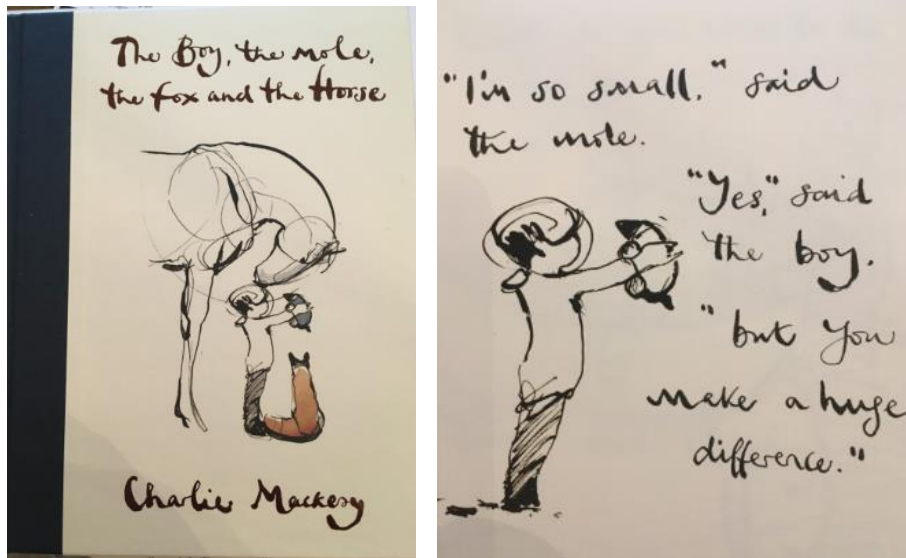 The Boy, the mole,
the fox and the Horse
Charlie Mackesy
"I'm so small," said
the mole.
"Yes," said
the boy.
"but you
make a huge
difference."